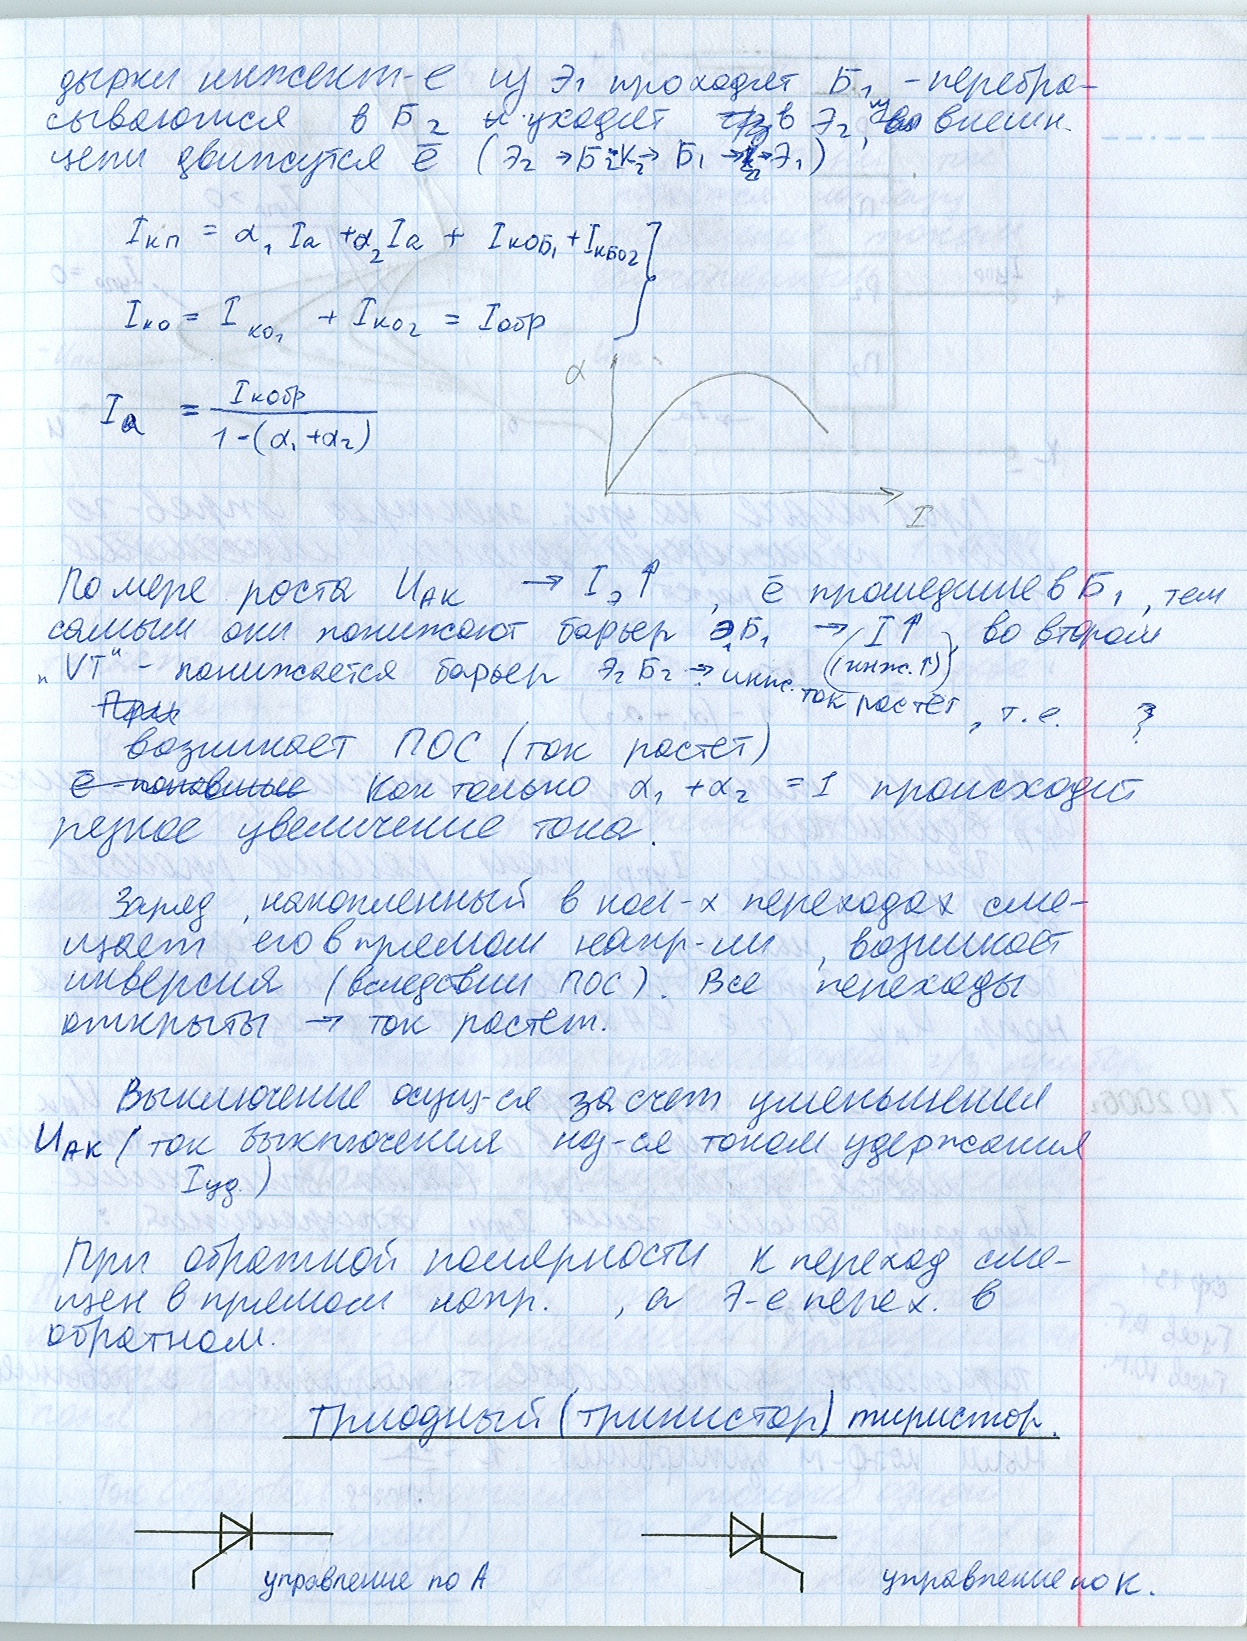 дырки инжект-е из Э₁ проходят Б₁, - перебра-
сываются в Б₂ и уходят в Э₂, во внешн.
цепи движутся ē (Э₂ → Б₂ К₂ → Б₁ → Э₁)
Iкп = α₁ Iа + α₂ Iа + IкоБ₁ + IкБо₂
Iко = Iко₁ + Iко₂ = Iобр
Iа = Iкобр / 1-(α₁ + α₂)
α
I
По мере роста UАК → Iэ ↑, ē прошедшие в Б₁, тем
самым они понижают барьер Э₁Б₁ → I↑, во втором
(инж.↑)
„VT“ - понижается барьер Э₂Б₂ → инж.
ток растет, т.е. ?
При
возникает ПОС (ток растет)
ē Как только α₁ + α₂ = 1 происходит
резкое увеличение тока.
Заряд, накопленный в кол-х переходах сме-
щает его в прямом напр-ии, возникает
инверсия (вследствии ПОС). Все переходы
открыты → ток растет.
Выключение осущ-ся за счет уменьшения
UАК (ток выключения наз-ся током удержания
Iуд.)
При обратной полярности К переход сме-
щен в прямом напр., а Э-е перех. в
обратном.
Триодный (тринистор) тиристор.
управление по А
управление по К.